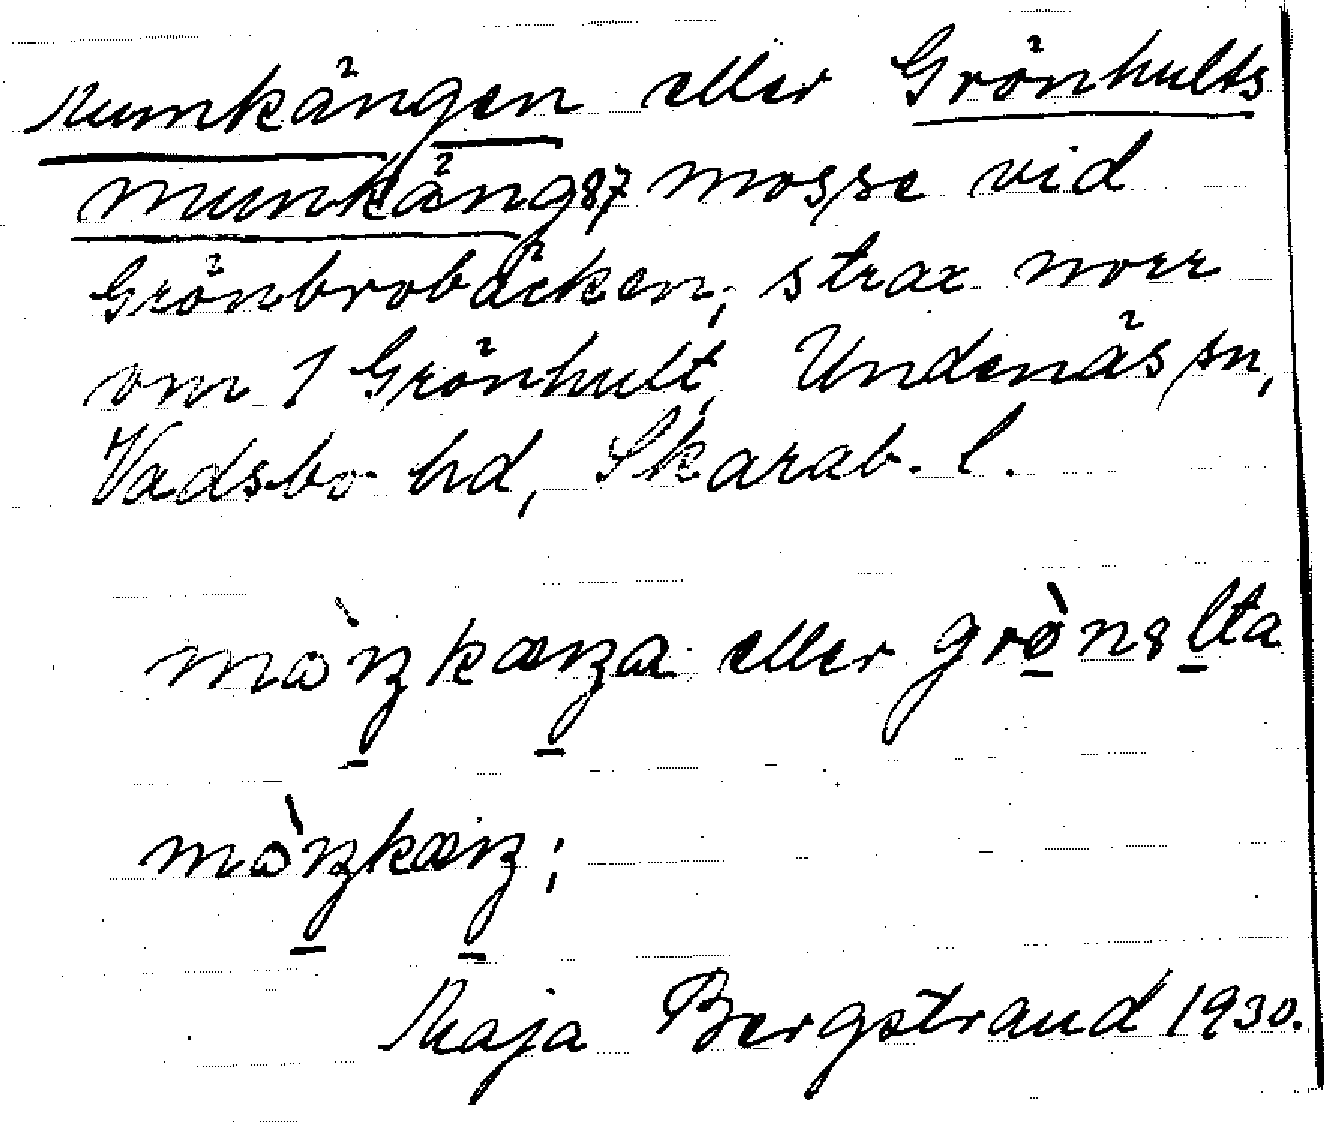 Munkängen eller Grönhults
munkäng 87 mosse vid
Grönbrobäcken, strax norr
om 1 Grönhult, Undenäs sn,
Vadsbo hd, Skarab. l.
eller
Maja Bergstrand 1930.